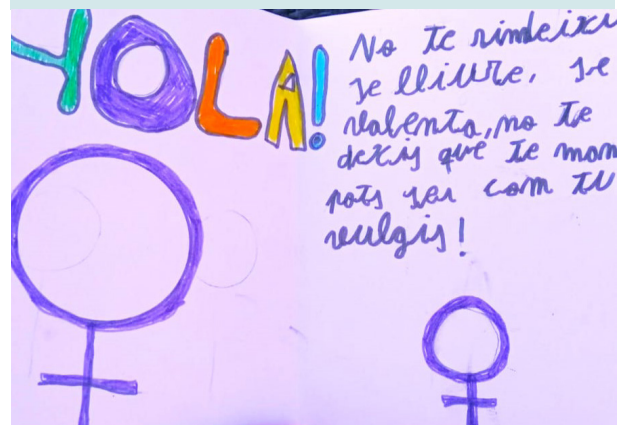 HOLA!
No te rindeixi
se lliure, se
valenta, no te
dexis que te man
pots ser com tu
vulgis!